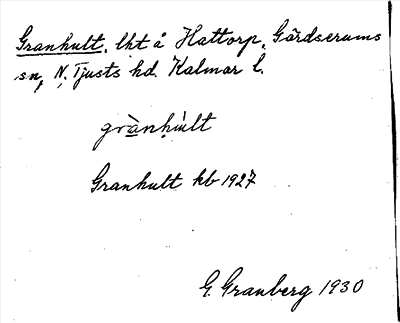 Granhult, lht å Hattorp, Gärdserums
sn, N. Tjusts hd. Kalmar l.
grànhùlt
Granhult kb 1927
G. Granberg 1930